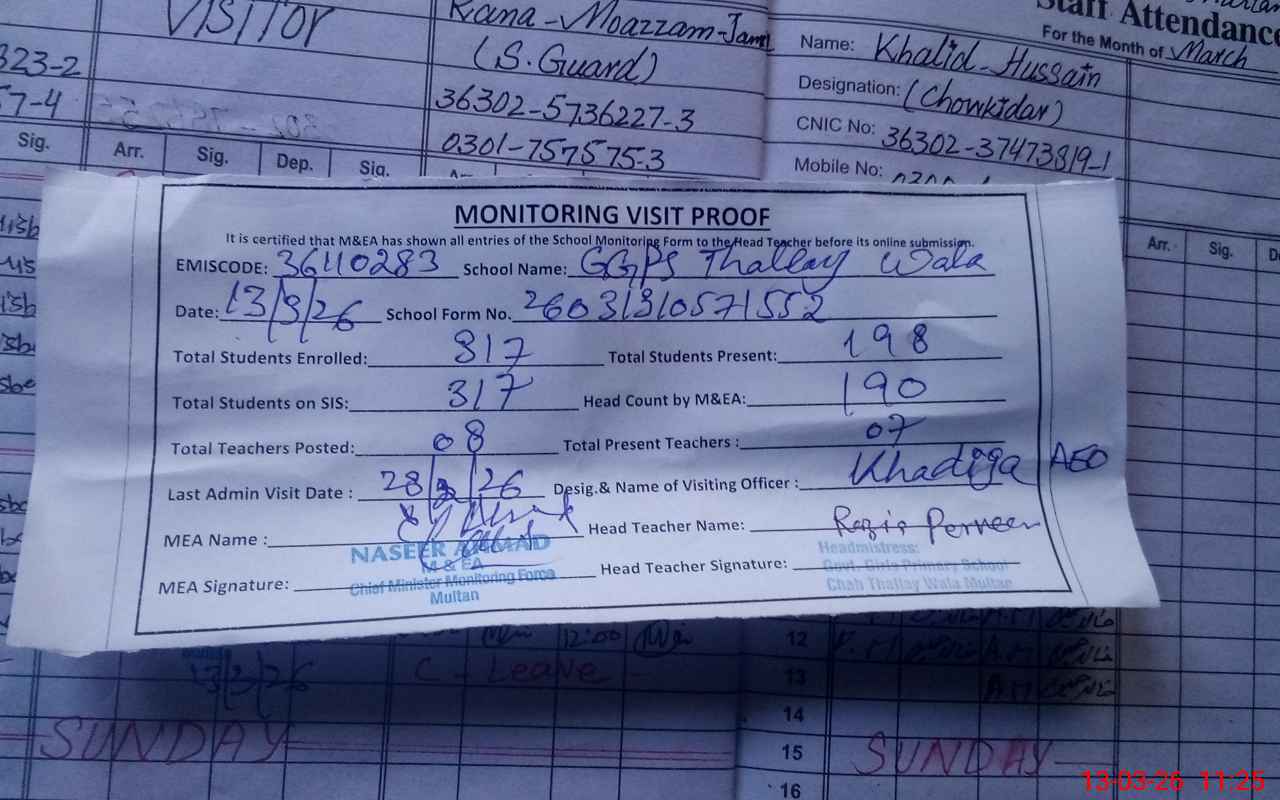 VISITOR
Rana-Moazzam-Jam
(S.Guard)
36302-5736227-3
0301-757575-3
323-2
57-4
Sig. Arr. Sig. Dep. Sig.
Staff Attendance
For the Month of March
Name: Khalid-Hussain
Designation: (Chowkidar)
CNIC No: 36302-37473819-1
Mobile No:
Arr. Sig.
MONITORING VISIT PROOF
It is certified that M&EA has shown all entries of the School Monitoring Form to the Head Teacher before its online submission.
EMISCODE: 36110283 School Name: GGPS Thallay Wala
Date: 13/3/26 School Form No. 26031310571552
Total Students Enrolled: 317 Total Students Present: 198
Total Students on SIS: 317 Head Count by M&EA: 190
Total Teachers Posted: 08 Total Present Teachers : 07
Last Admin Visit Date : 28/2/26 Desig.& Name of Visiting Officer : Khadija AEO
MEA Name : Head Teacher Name: Razia Perveen
NASEER AHMAD
M & EA
Chief Minister Monitoring Force
Multan
MEA Signature: Head Teacher Signature:
Headmistress:
Govt. Girls Primary School
Chah Thallay Wala Multan
12:00
13/3/26
C - Leave -
SUNDAY
12
13
14
15 SUNDAY
16
13-03-26 11:25